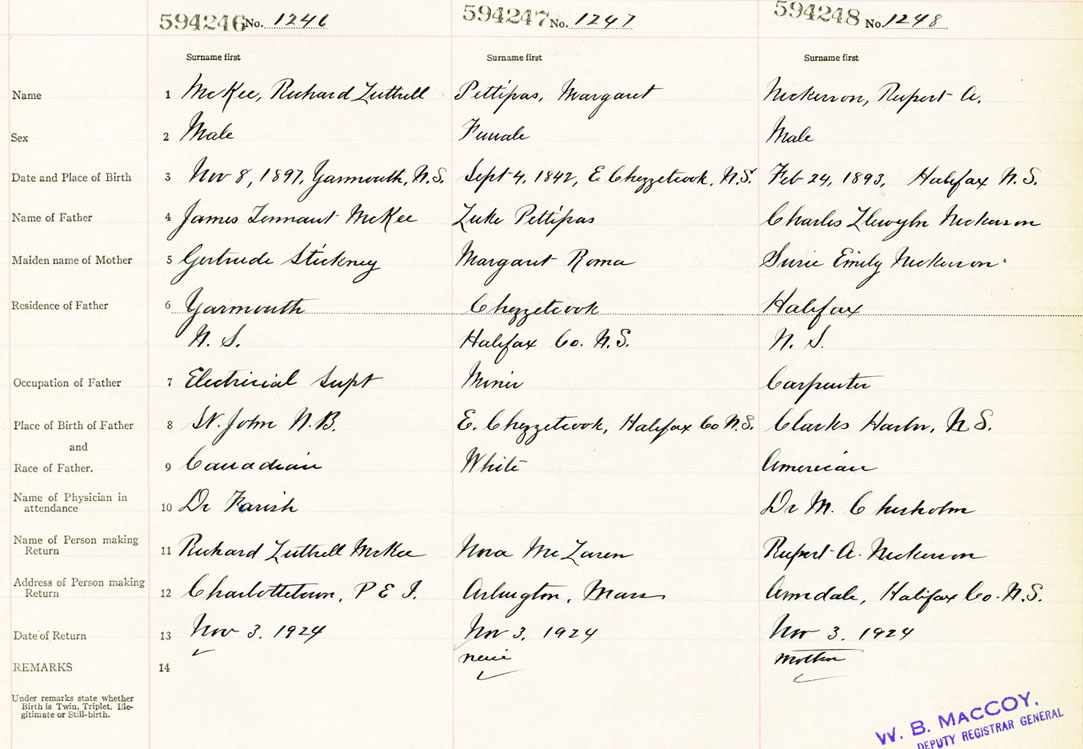 594246 No. 1246 594247 No. 1247 594248 No. 1248
Surname first Surname first Surname first
Name 1 McKee, Richard Luttrell Pettipas, Margaret Nickerson, Rupert A.
Sex 2 Male Female Male
Date and Place of Birth 3 Nov 8, 1897, Yarmouth, N.S. Sept 4, 1842, E Chezzetcook, N.S. Feb 24, 1893, Halifax N.S.
Name of Father 4 James Tennant McKee Luke Pettipas Charles Llewyln Nickerson
Maiden name of Mother 5 Gertrude Stickney Margaret Roma Susie Emily Nickerson
Residence of Father 6 Yarmouth Chezzetcook Halifax
N. S. Halifax Co. N.S. N. S.
Occupation of Father 7 Electricial Supt Miner Carpenter
Place of Birth of Father 8 St. John N.B. E. Chezzetcook, Halifax Co N.S. Clarks Harbr, N S.
and
Race of Father. 9 Canadian White American
Name of Physician in
attendance 10 Dr Farish Dr M. Chisholm
Name of Person making
Return 11 Richard Luttrell McKee Nora McLaren Rupert A. Nickerson
Address of Person making
Return 12 Charlottetown, P E I. Arlington, Mass Armdale, Halifax Co. N.S.
Date of Return 13 Nov 3, 1924 Nov 3, 1924 Nov 3, 1924
REMARKS 14 neice mother
Under remarks state whether
Birth is Twin, Triplet, Ille-
gitimate or Still-birth.
W. B. MACCOY.
DEPUTY REGISTRAR GENERAL